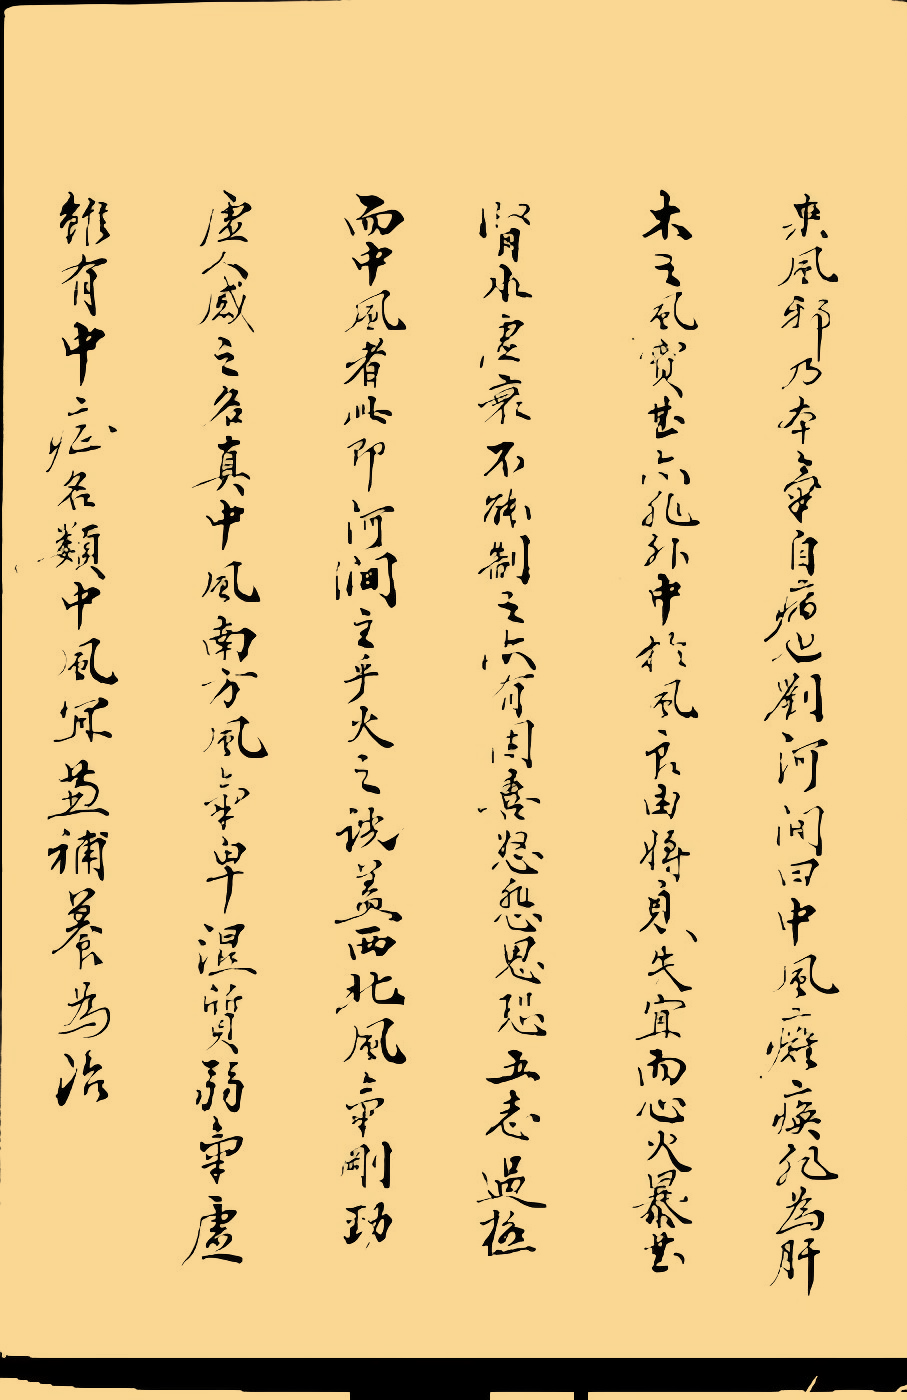 來風邪乃本氣自病也劉河間曰中風癱瘓非為肝
木之風實甚亦非外中於風良由將息失宜而心火暴甚
腎水虛衰不能制之亦有因喜怒悲思恐五志過極
而中風者此即河澗主乎火之說蓋西北風氣剛勁
虛人感之名真中風南方風氣卑濕質弱氣虛
雖有中症名類中風宜兼補養為治